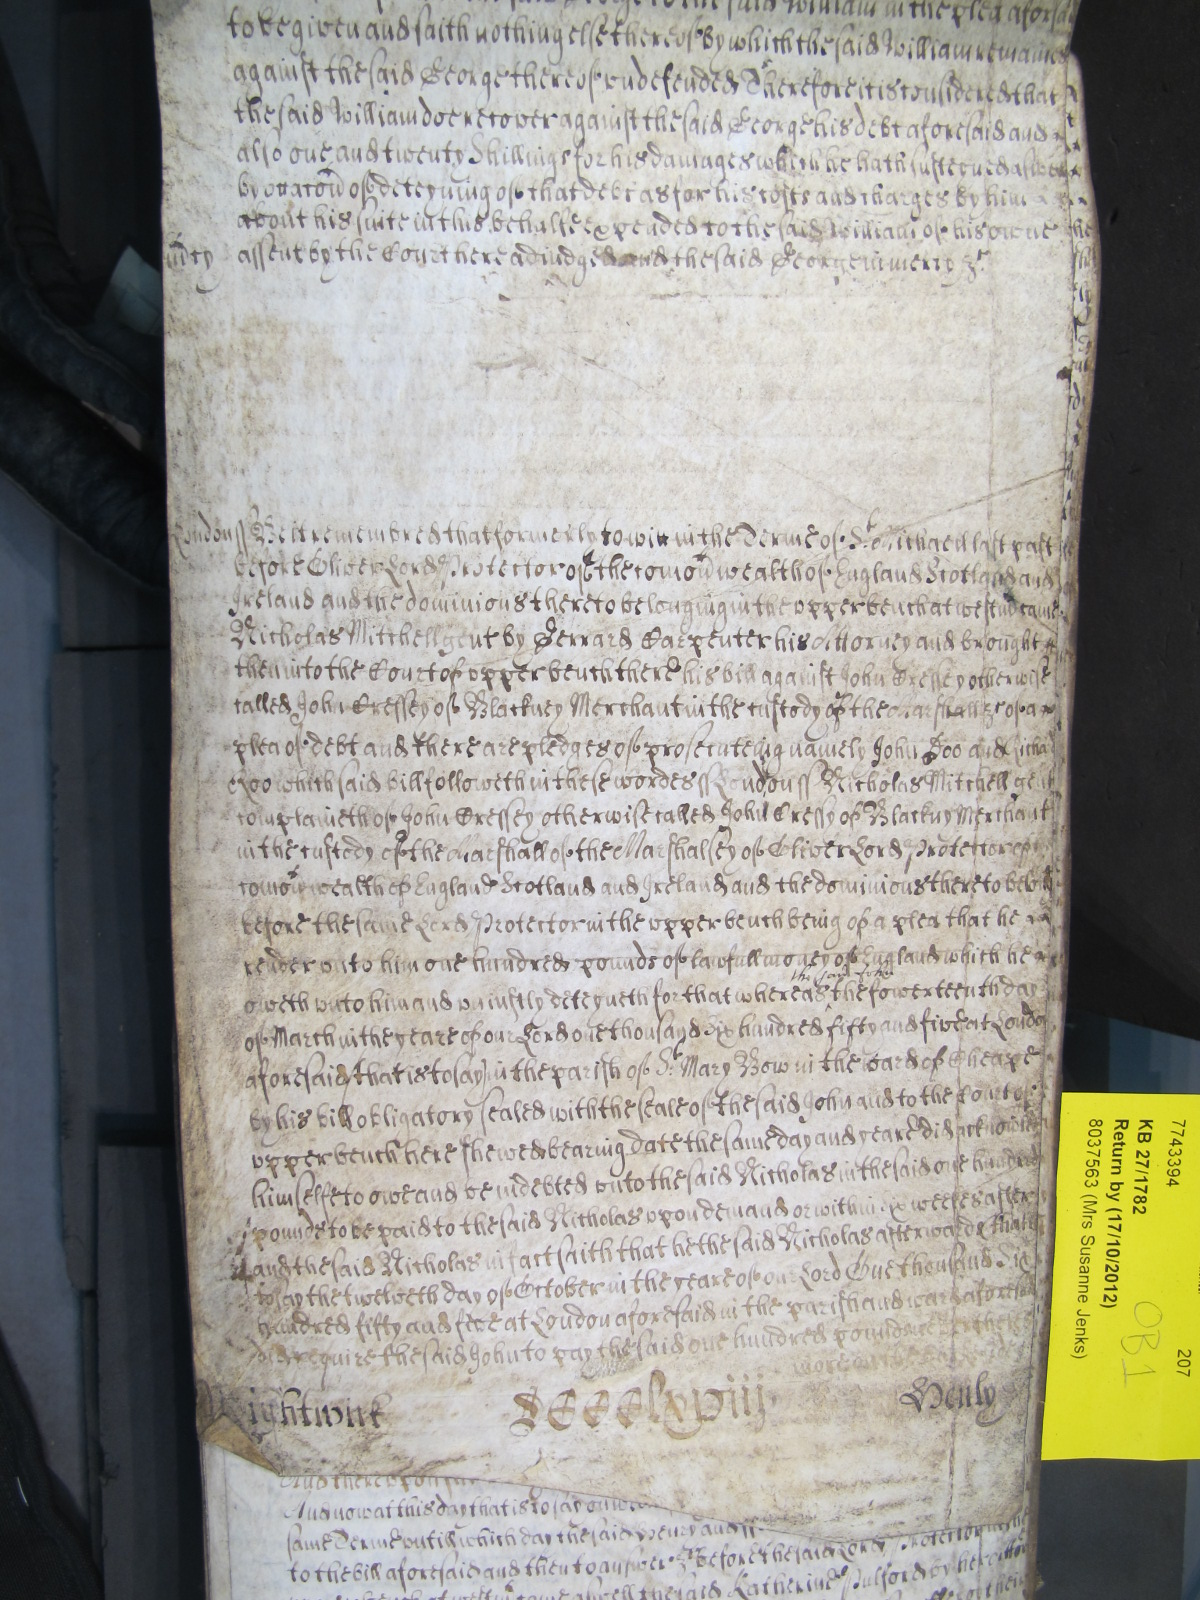 said George to the said William in the plea aforsd
to be given and saith nothing else thereof by which the said William remaines
against the said George thereof undefended Therefore it is considered that
the said William doe recover against the said George his debt aforesaid and
also one and twenty Shillings for his damages which he hath susteyned aswell
by occacon of deteyning of that debt as for his costs and charges by him
about his suite in this behalfe expended to the said William of his owne
assent by the Court here adiudged and the said George in mercy &c
London ss Be it remembred that formerly to wit in the Terme of St Michaell last past
before Oliver Lord Protector of the comon wealth of England Scotland and
Ireland and the dominions thereto belonging in the upper bench at westmr came
Nicholas Mitchell gent by Gerrard Carpenter his Attorney and brought
then into the Court of upper bench there his bill against John Cressey otherwise
called John Cressey of Blackney Merchant in the custody of the Marshall &c of a
plea of debt and there are pledges of prosecuteing namely John Doo and Richard
Roo which said bill followeth in these wordes ss London ss Nicholas Mitchell gent
complaineth of John Cressey otherwise called John Cressy of Blackny Merchant
in the custody of the Marshall of the Marshalsey of Oliver Lord Protector of the
comon wealth of England Scotland and Ireland and the dominions thereto belong
before the same Lord Protector in the upper bench being of a plea that he
render unto him one hundred pounds of lawfull money of England which he
the said John
oweth unto him and uniustly deteyneth for that whereas the fowerteenth day
of March in the yeare of our Lord one thousand six hundred fifty and five at London
aforesaid that is to say in the parish of St Mary Bow in the ward of Cheape
by his bill obligatory sealed with the seale of the said John and to the Court of
upper bench here shewed bearing date the same day and yeare did acknowledge
himselfe to owe and be indebted unto the said Nicholas in the said one hundred
pounds to be paid to the said Nicholas upon demand or within six weekes after
and the said Nicholas in fact saith that he the said Nicholas afterwards that is
to say the twelveth day of October in the yeare of our Lord One thousand Six
hundred fifty and five at London aforesaid in the parish and ward aforesaid
did require the said John to pay the said one hundred pounds
Wightwick DCCCClxviij Henly
And thereupon
And now at this day that is to say on
same Terme untill which day the said Henry
to the bill aforesaid and then to answer &c before the said Lord Protector
came aswell the said Katherine Pulford by her
7743394 207
KB 27/1782
Return by (17/10/2012)
8037563 (Mrs Susanne Jenks)
OB1